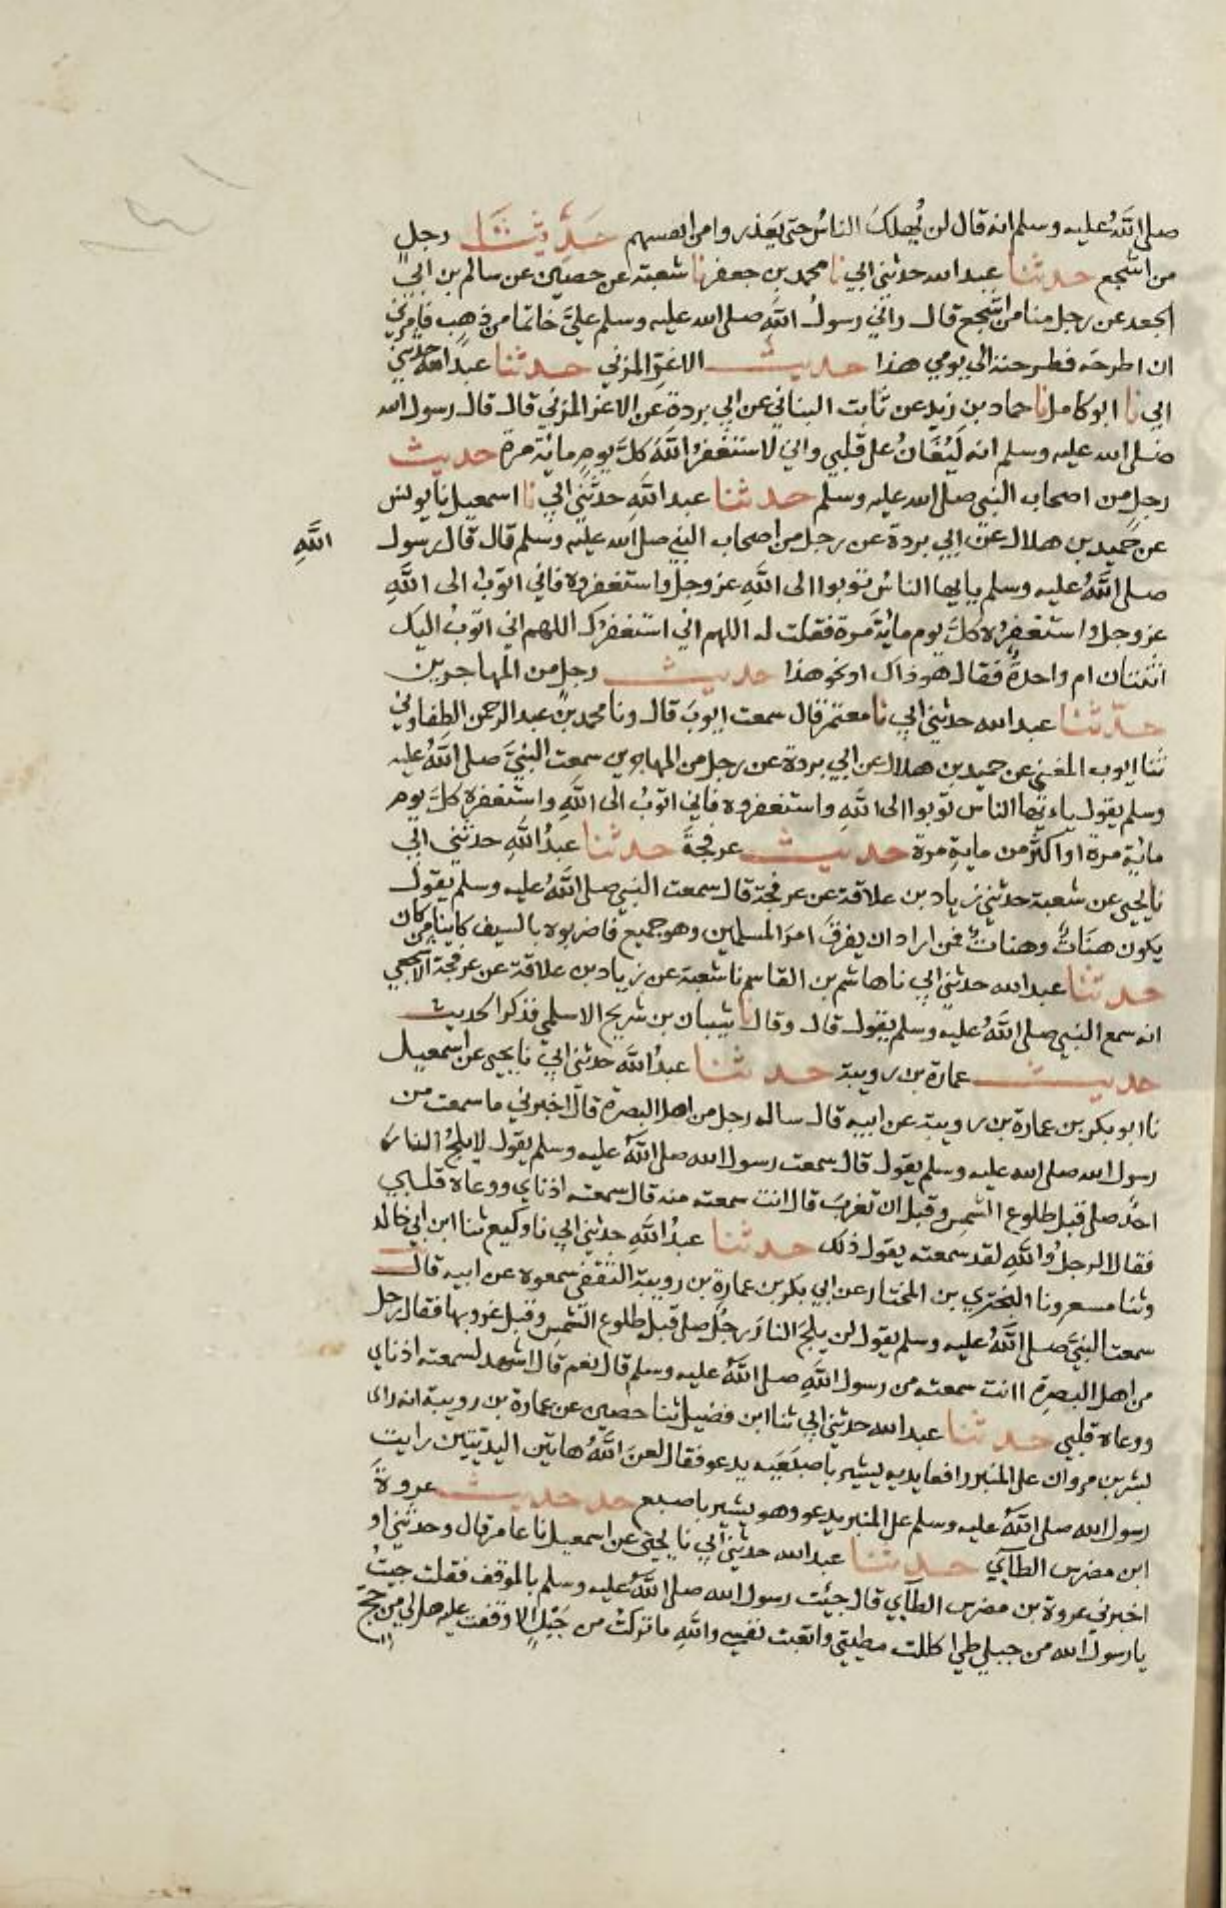 صلى اللَّهُ عليه وسلم انه قال لن يُهلَكَ الناسُ حتى يَعذر وا من انفسهم حَدِيثنَا رجلٍ
من اشجع حدثنا عبد الله حدثني ابي نا محمد بن جعفر نا شعبة عن حصين عن سالم بن ابي
الجعد عن رجل منا من اشجع قال راني رسولُ اللَّهِ صلى الله عليه وسلم عليَّ خاتما من ذهب فامرني
ان اطرحه فطرحته الى يومي هذا حديث الاغرّ المزني حدثنا عبد الله حدثني
ابي نا ابو كامل نا حماد بن زيد عن ثابت البناني عن ابي بردة عن الاغر المزني قال قال رسول الله
صلى الله عليه وسلم انه لَيُغَانُ على قلبي واني لاستغفرُ اللَّهَ كلَّ يومٍ مائة مرة حديث
رجلٍ من اصحاب النبي صلى الله عليه وسلم حدثنا عبد اللَّهِ حدَّثني ابي نا اسمعيل نا يونس
عن حُميد بن هلال عن ابي بردة عن رجل من اصحاب النبي صلى الله عليه وسلم قال قال رسول اللَّهِ
صلى اللَّهُ عليه وسلم يايها الناسُ توبوا الى اللَّهِ عز وجل واستغفروه فاني اتوبُ الى اللَّهِ
عز وجل واستغفِرُه كلَّ يوم مائةَ مرة فقلت له اللهم اني استغفرُك اللهم اني اتوبُ اليك
اثنتان ام واحدةٌ فقال هو ذاك او نحو هذا حديث رجلٍ من المهاجرين
حدّثنا عبد الله حدثني ابي نا معتمر قال سمعت ايوبَ قال ونا محمد بن عبد الرحمن الطفاوي
ثنا ايوب المعني عن حميد بن هلال عن ابي بردة عن رجل من المهاجرين سمعت النبيَّ صلى اللَّهُ عليه
وسلم يقول ياءيُّها الناس توبوا الى اللَّهِ واستغفروه فاني اتوبُ الى اللَّهِ واستغفره كلَّ يوم
مائةٍ مرة او اكثرَ من مايةِ مرة حديث عرفجةَ حدثنا عبدُ اللَّهِ حدثني ابي
نا يحيى عن شعبة حدثني زياد بن علاقة عن عرفجة قال سمعت النبي صلى اللَّهُ عليه وسلم يقول
يكون هنَاتٌ وهناتٌ فمن اراد ان يفرقَ امرَ المسلمين وهو جميع فاضربوه بالسيف كاينا من كان
حدثنا عبد الله حدثني ابي نا هاشم بن القاسم نا شعبة عن زياد بن علاقة عن عرفجة الاشجعي
انه سمع النبي صلى اللَّهُ عليه وسلم يقول قال وقال نا شيبان بن شريح الاسلمي فذكر الحديث
حديث عمارة بن رويبة حدثنا عبدُ اللَّه حدثني ابي نا يحيى عن اسمعيل
نا ابو بكر بن عمارة بن رويبة عن ابيه قال ساله رجل من اهل البصرة قال اخبرني ما سمعت من
رسول الله صلى الله عليه وسلم يقول قال سمعت رسول الله صلى اللَّهُ عليه وسلم يقول لا يلجُ النارَ
احدٌ صلى قبل طلوع الشمس وقبل ان تغربَ قال انت سمعته منه قال سمعته اذناي ووعاه قلبي
فقال الرجلُ واللَّهِ لقد سمعته يقول ذلك حدثنا عبدُ اللَّهِ حدثني ابي نا وكيع ثنا ابن ابي خالد
وثنا مسعر ونا البختري بن المختار عن ابي بكر بن عمارة بن رويبة الثقفي سمعوه عن ابيه قال
سمعت النبيَّ صلى اللَّهُ عليه وسلم يقول لن يلجَ النارَ رجلٌ صلى قبل طلوع الشمس وقبل غروبها فقال رجل
من اهل البصرة اانت سمعته من رسول اللَّهِ صلى اللَّهُ عليه وسلم قال نعم قال اشهد لسمعته اذناي
ووعاه قلبي حدثنا عبد الله حدثني ابي ثنا ابن فضيل ثنا حصين عن عمارة بن رويبة انه راى
بشر بن مروان على المنبر رافعا يديه يشير باصبَعَيه يدعو فقال لعنَ اللَّهُ هاتين اليديتين رايت
رسول الله صلى اللَّهُ عليه وسلم على المنبر يدعو وهو يشير باصبع حد حديث عروةَ
ابن مضرس الطاَّيِ حدثنا عبد الله حدثني ابي نا يحيى عن اسمعيل نا عامر قال وحدثني او
اخبرني عروة بن مضرس الطاَّيِ قال جيَت رسول الله صلى اللَّهُ عليه وسلم بالموقف فقلت جيتُ
يا رسول الله من جبلي طي اكللت مطيتي واتعبت نفسي واللَّهِ ما تركتُ من جَبَلٍ الا وقفت عليه هل لي من حجّ